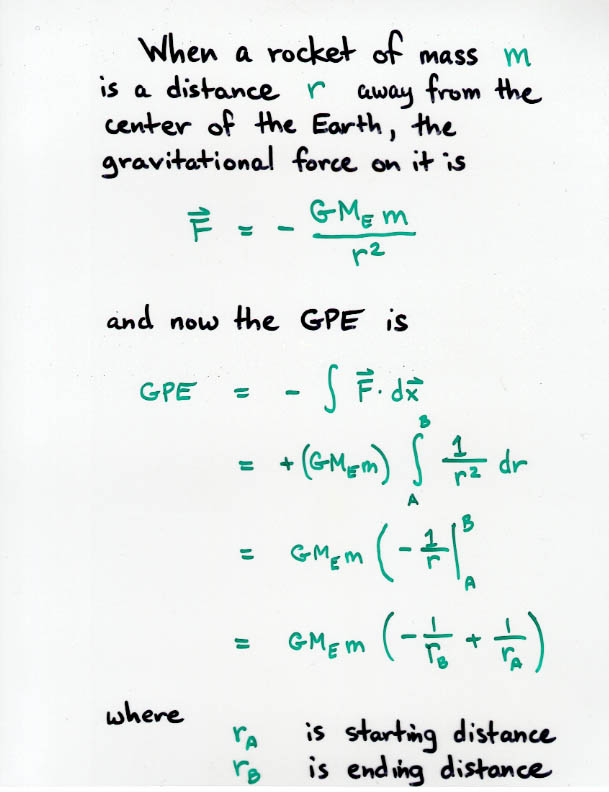 When a rocket of mass m
is a distance r away from the
center of the Earth, the
gravitational force on it is
F⃗ = - GM_E m / r²
and now the GPE is
GPE = - ∫ F⃗ · dx⃗
= + (GM_E m) ∫_A^B 1/r² dr
= GM_E m (- 1/r |_A^B
= GM_E m (- 1/r_B + 1/r_A)
where
r_A is starting distance
r_B is ending distance